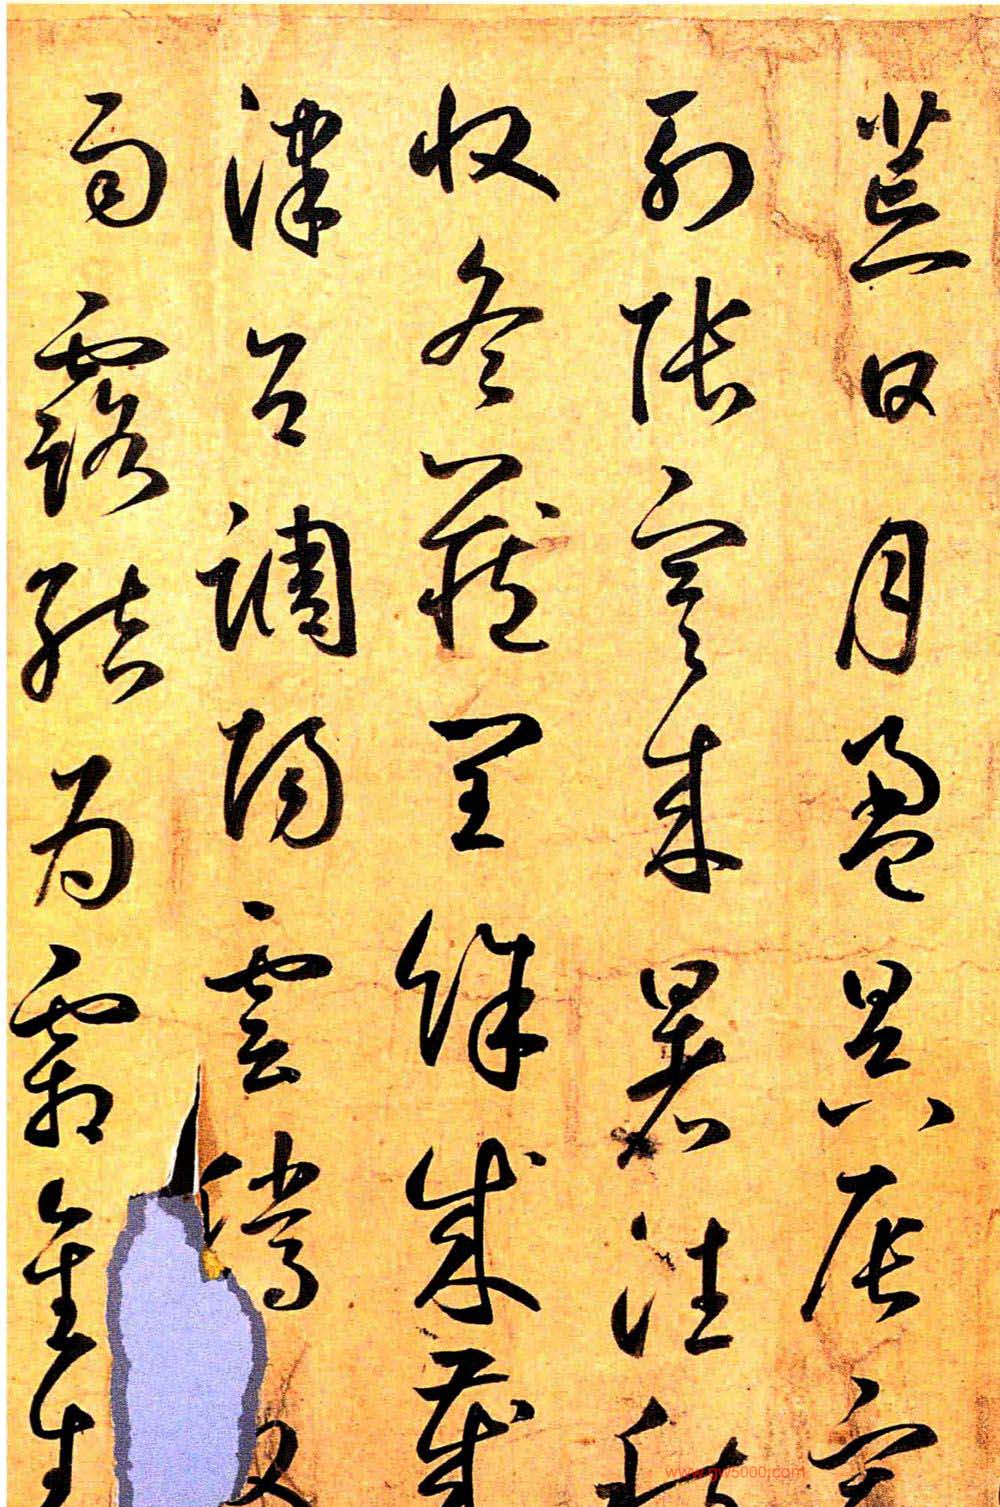 荒日月盈昃辰宿
列張寒來暑往秋
收冬藏閏餘成歲
律呂調陽雲騰
雨露結為霜金生